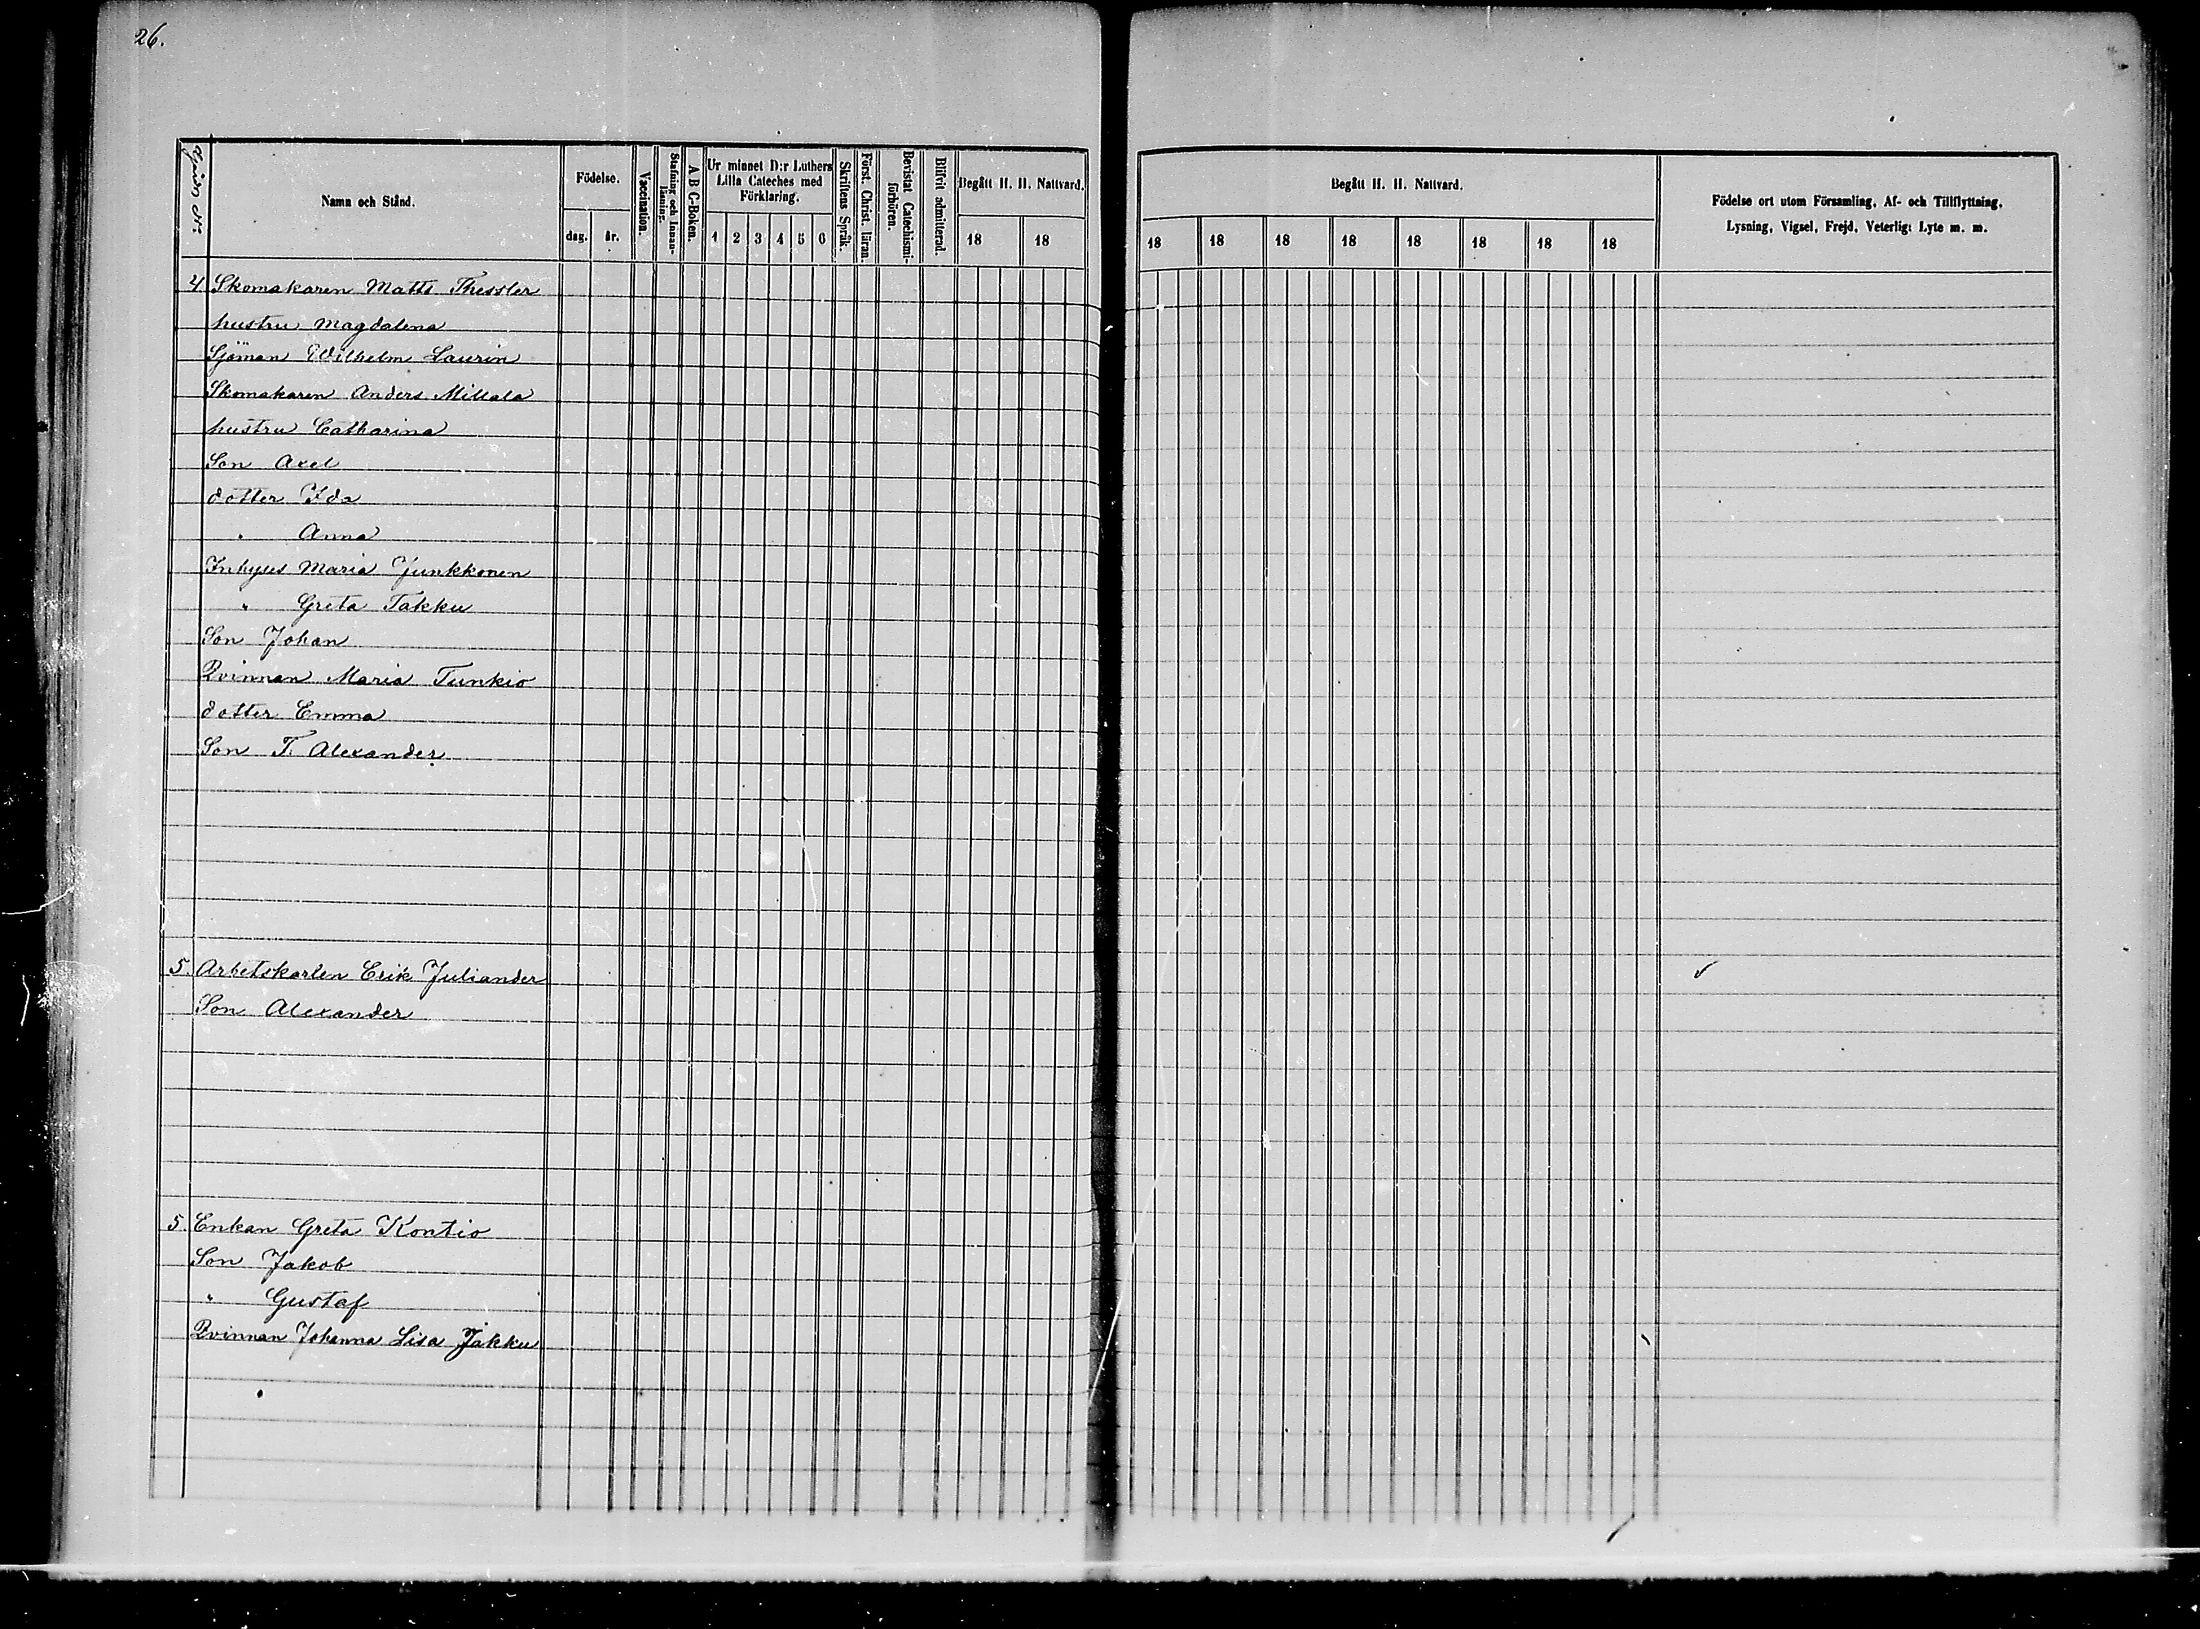 26.
Gårds Nr.
Namn och Stånd.
Födelse.
dag.
år.
Vaccination.
Stafning och Innan-
läsning.
A B C-Boken.
Ur minnet D:r Luthers
Lilla Cateches med
Förklaring.
1 2 3 4 5 6
Skriftens Språk.
Först. Christ. läran.
Bevistat Catechismi-
förhören.
Blifvit admitterad.
Begått H. H. Nattvard.
18 18
Begått H. H. Nattvard.
18 18 18 18 18 18 18 18
Födelse ort utom Församling, Af- och Tillflyttning,
Lysning, Vigsel, Frejd, Veterligt Lyte m. m.
4 Skomakaren Matts Thessler
hustru Magdalena
Sjöman Wilhelm Laurin
Skomakaren Anders Millala
hustru Catharina
Son Axel
dotter Ida
" Anna
Inhyses Maria Junkkonen
" Greta Takku
Son Johan
Qvinnan Maria Tunkio
dotter Emma
Son T. Alexander
5. Arbetskarlen Erik Juliander
Son Alexander
5. Enkan Greta Kontio
Son Jakob
" Gustaf
Qvinnan Johanna Lisa Jakku